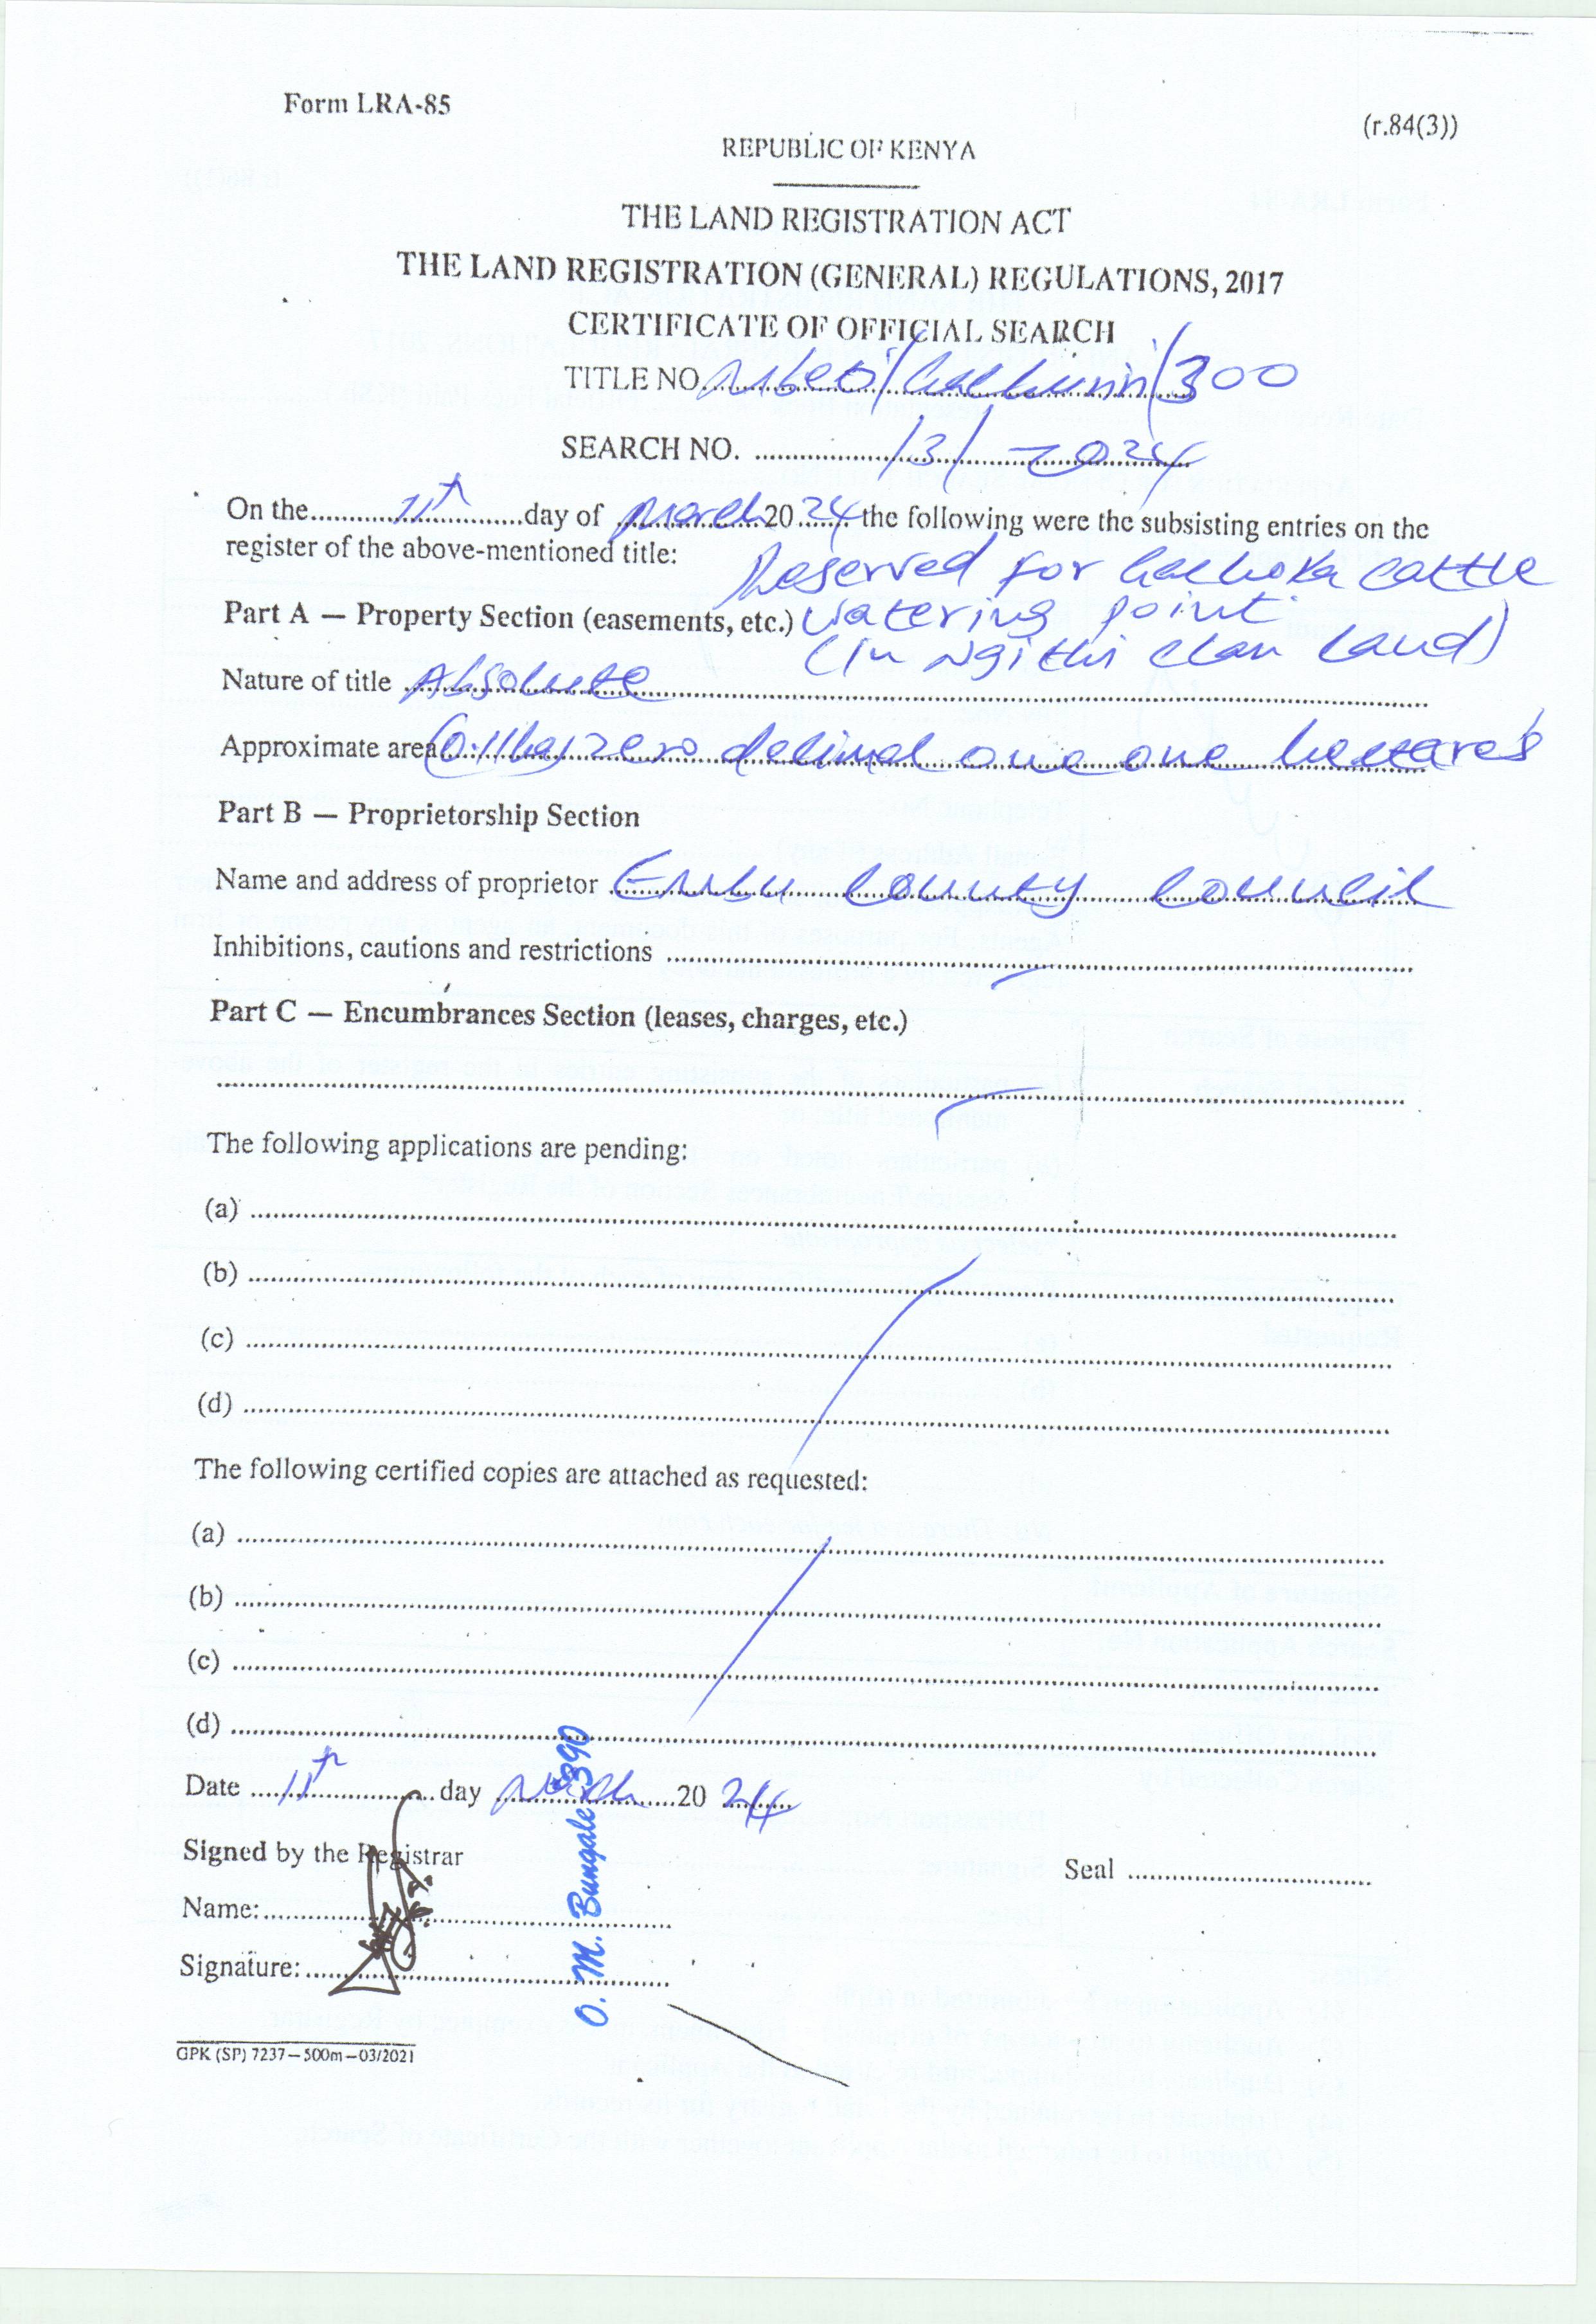 Form LRA-85
(r.84(3))
REPUBLIC OF KENYA
THE LAND REGISTRATION ACT
THE LAND REGISTRATION (GENERAL) REGULATIONS, 2017
CERTIFICATE OF OFFICIAL SEARCH
TITLE NO. /300
SEARCH NO. /3/ 2024
On the 11th day of March 2024 the following were the subsisting entries on the
register of the above-mentioned title:
Reserved for Gachoka cattle
Part A — Property Section (easements, etc.) Watering point
(In Ngithi clan land)
Nature of title Absolute
Approximate area (0.11ha) zero decimal one one hectares
Part B — Proprietorship Section
Name and address of proprietor Embu County Council
Inhibitions, cautions and restrictions
Part C — Encumbrances Section (leases, charges, etc.)
The following applications are pending:
(a)
(b)
(c)
(d)
The following certified copies are attached as requested:
(a)
(b)
(c)
(d)
Date 11th day March 2024
O. M. Bungale 390
Signed by the Registrar
Seal
Name:
Signature:
GPK (SP) 7237—500m—03/2021